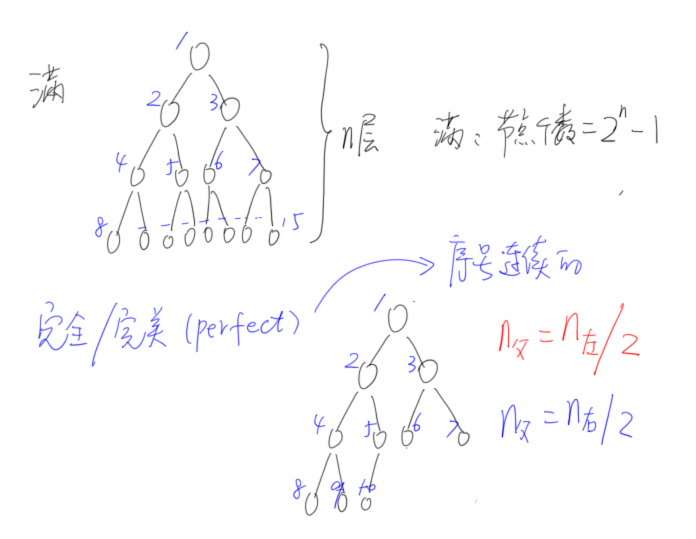 满
1
2 3
4 5 6 7
8 - - - - - - 15
n层
满：节点个数=2ⁿ-1
完全/完美(perfect)
序号连续的
1
2 3
4 5 6 7
8 9 10
n父=n左/2
n父=n右/2